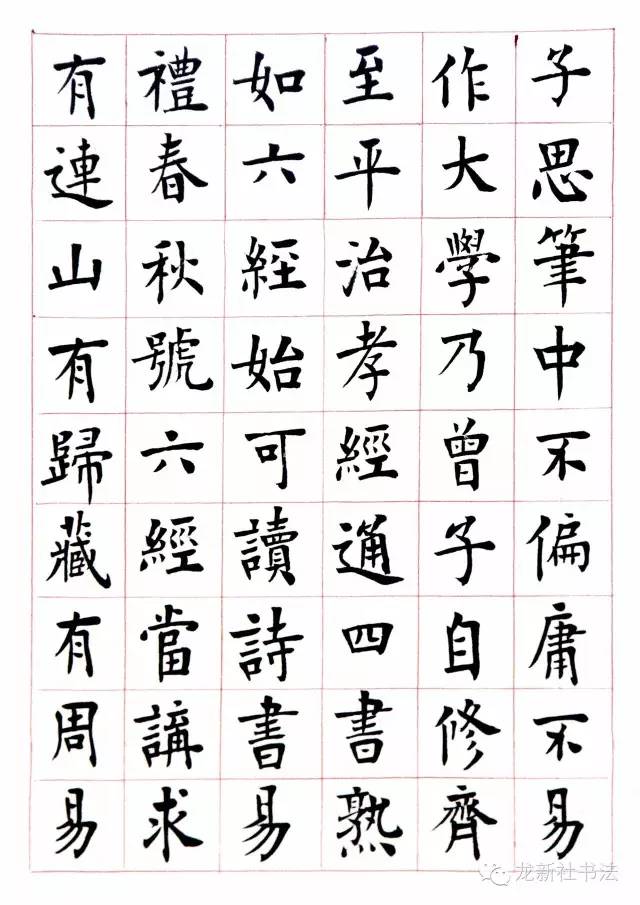 子思筆中不偏庸不易
作大學乃曾子自修齊
至平治孝經通四書熟
如六經始可讀詩書易
禮春秋號六經當講求
有連山有歸藏有周易
龙新社书法